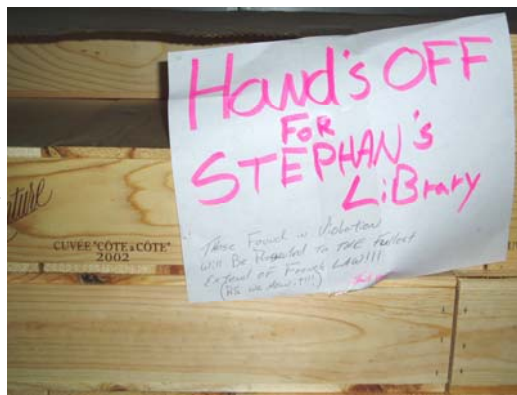 Hand's OFF
FOR
STEPHAN'S
LiBrary
Those Found in Violation
will Be to THE Fullest
Extend of French LAW!!!
(AS we
CUVÉE "CÔTE à CÔTE"
2002